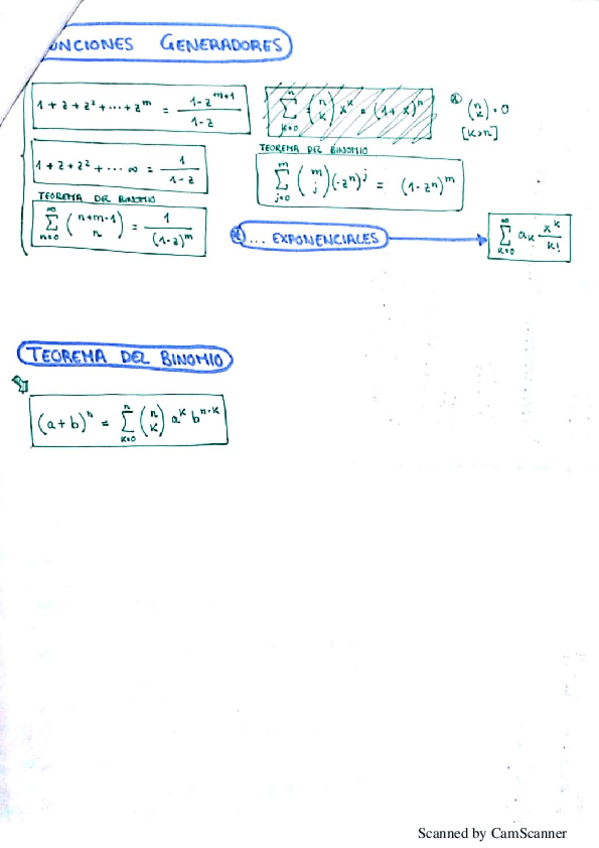 UNCIONES GENERADORES
1 + z + z² + ... + z^m = (1 - z^(m+1)) / (1 - z)
∑_{k=0}^{n} (n k) x^k = (1 + x)^n
(n k) = 0
[k>n]
1 + z + z² + ... ∞ = 1 / (1 - z)
TEOREMA DEL BINOMIO
∑_{j=0}^{m} (m j) (-z^n)^j = (1 - z^n)^m
TEOREMA DEL BINOMIO
∑_{n=0}^{∞} (n+m-1 n) = 1 / (1-z)^m
... EXPONENCIALES → ∑_{k=0}^{∞} a_k x^k / k!
TEOREMA DEL BINOMIO
(a+b)^n = ∑_{k=0}^{n} (n k) a^k b^(n-k)
Scanned by CamScanner